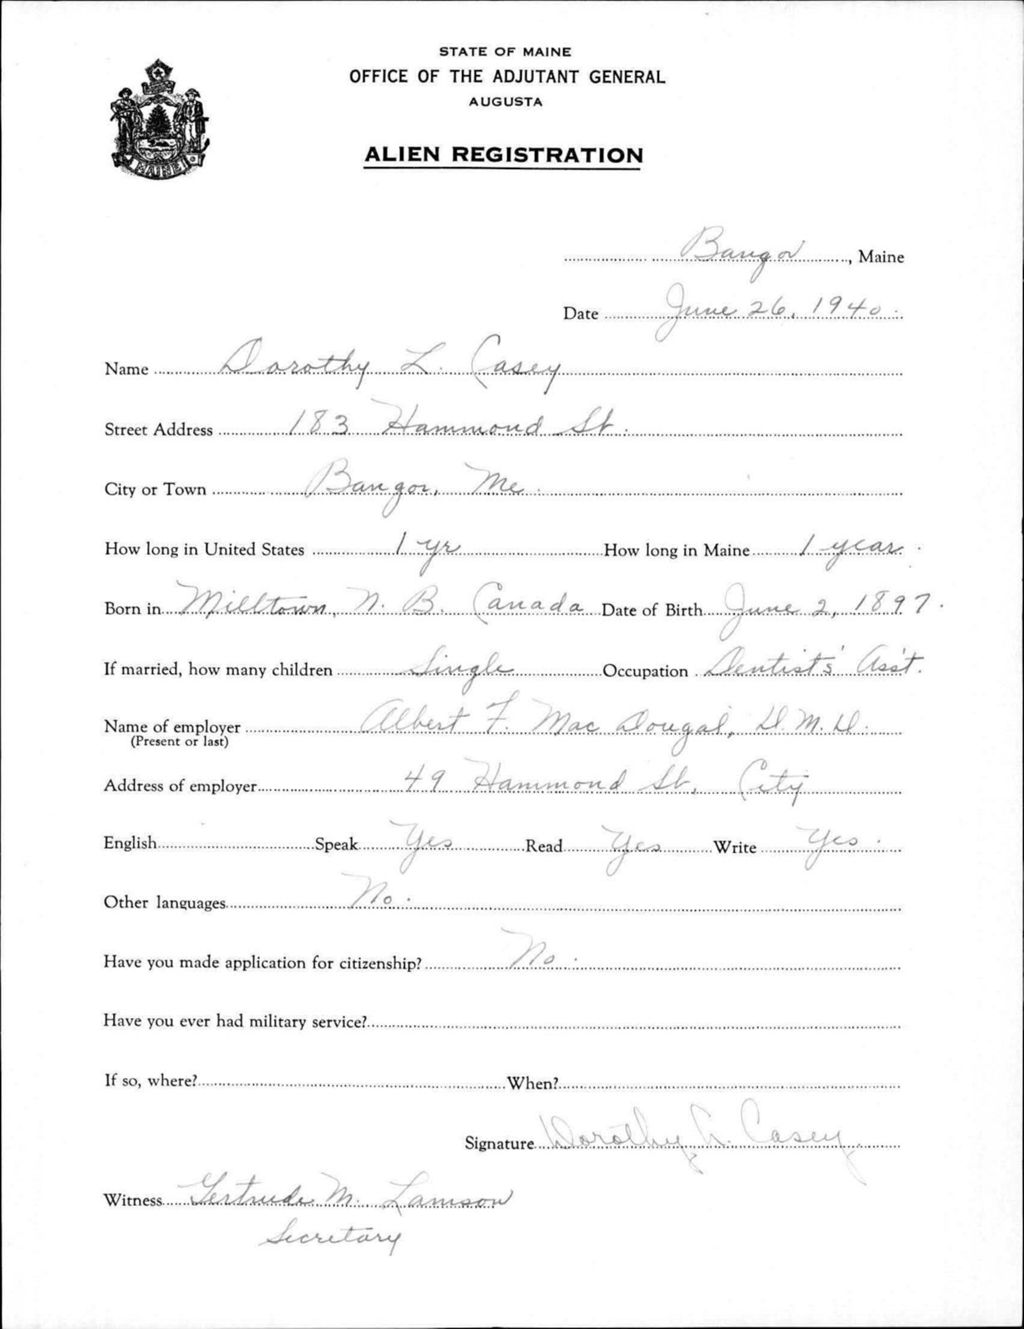 STATE OF MAINE
OFFICE OF THE ADJUTANT GENERAL
AUGUSTA
ALIEN REGISTRATION
MAINE
Bangor, Maine
Date June 26, 1940.
Name Dorothy L. Casey
Street Address 183 Hammond St.
City or Town Bangor, Me.
How long in United States 1 yr How long in Maine 1 year.
Born in Milltown, N. B. Canada Date of Birth June 2, 1897.
If married, how many children Single Occupation Dentist's Ass't.
Name of employer Albert F. Mac Dougal, D.M.D.
(Present or last)
Address of employer 49 Hammond St. City
English Speak Yes Read Yes Write Yes.
Other languages No.
Have you made application for citizenship? No.
Have you ever had military service?
If so, where? When?
Signature Dorothy L. Casey
Witness Gertrude M. Lamson
Secretary